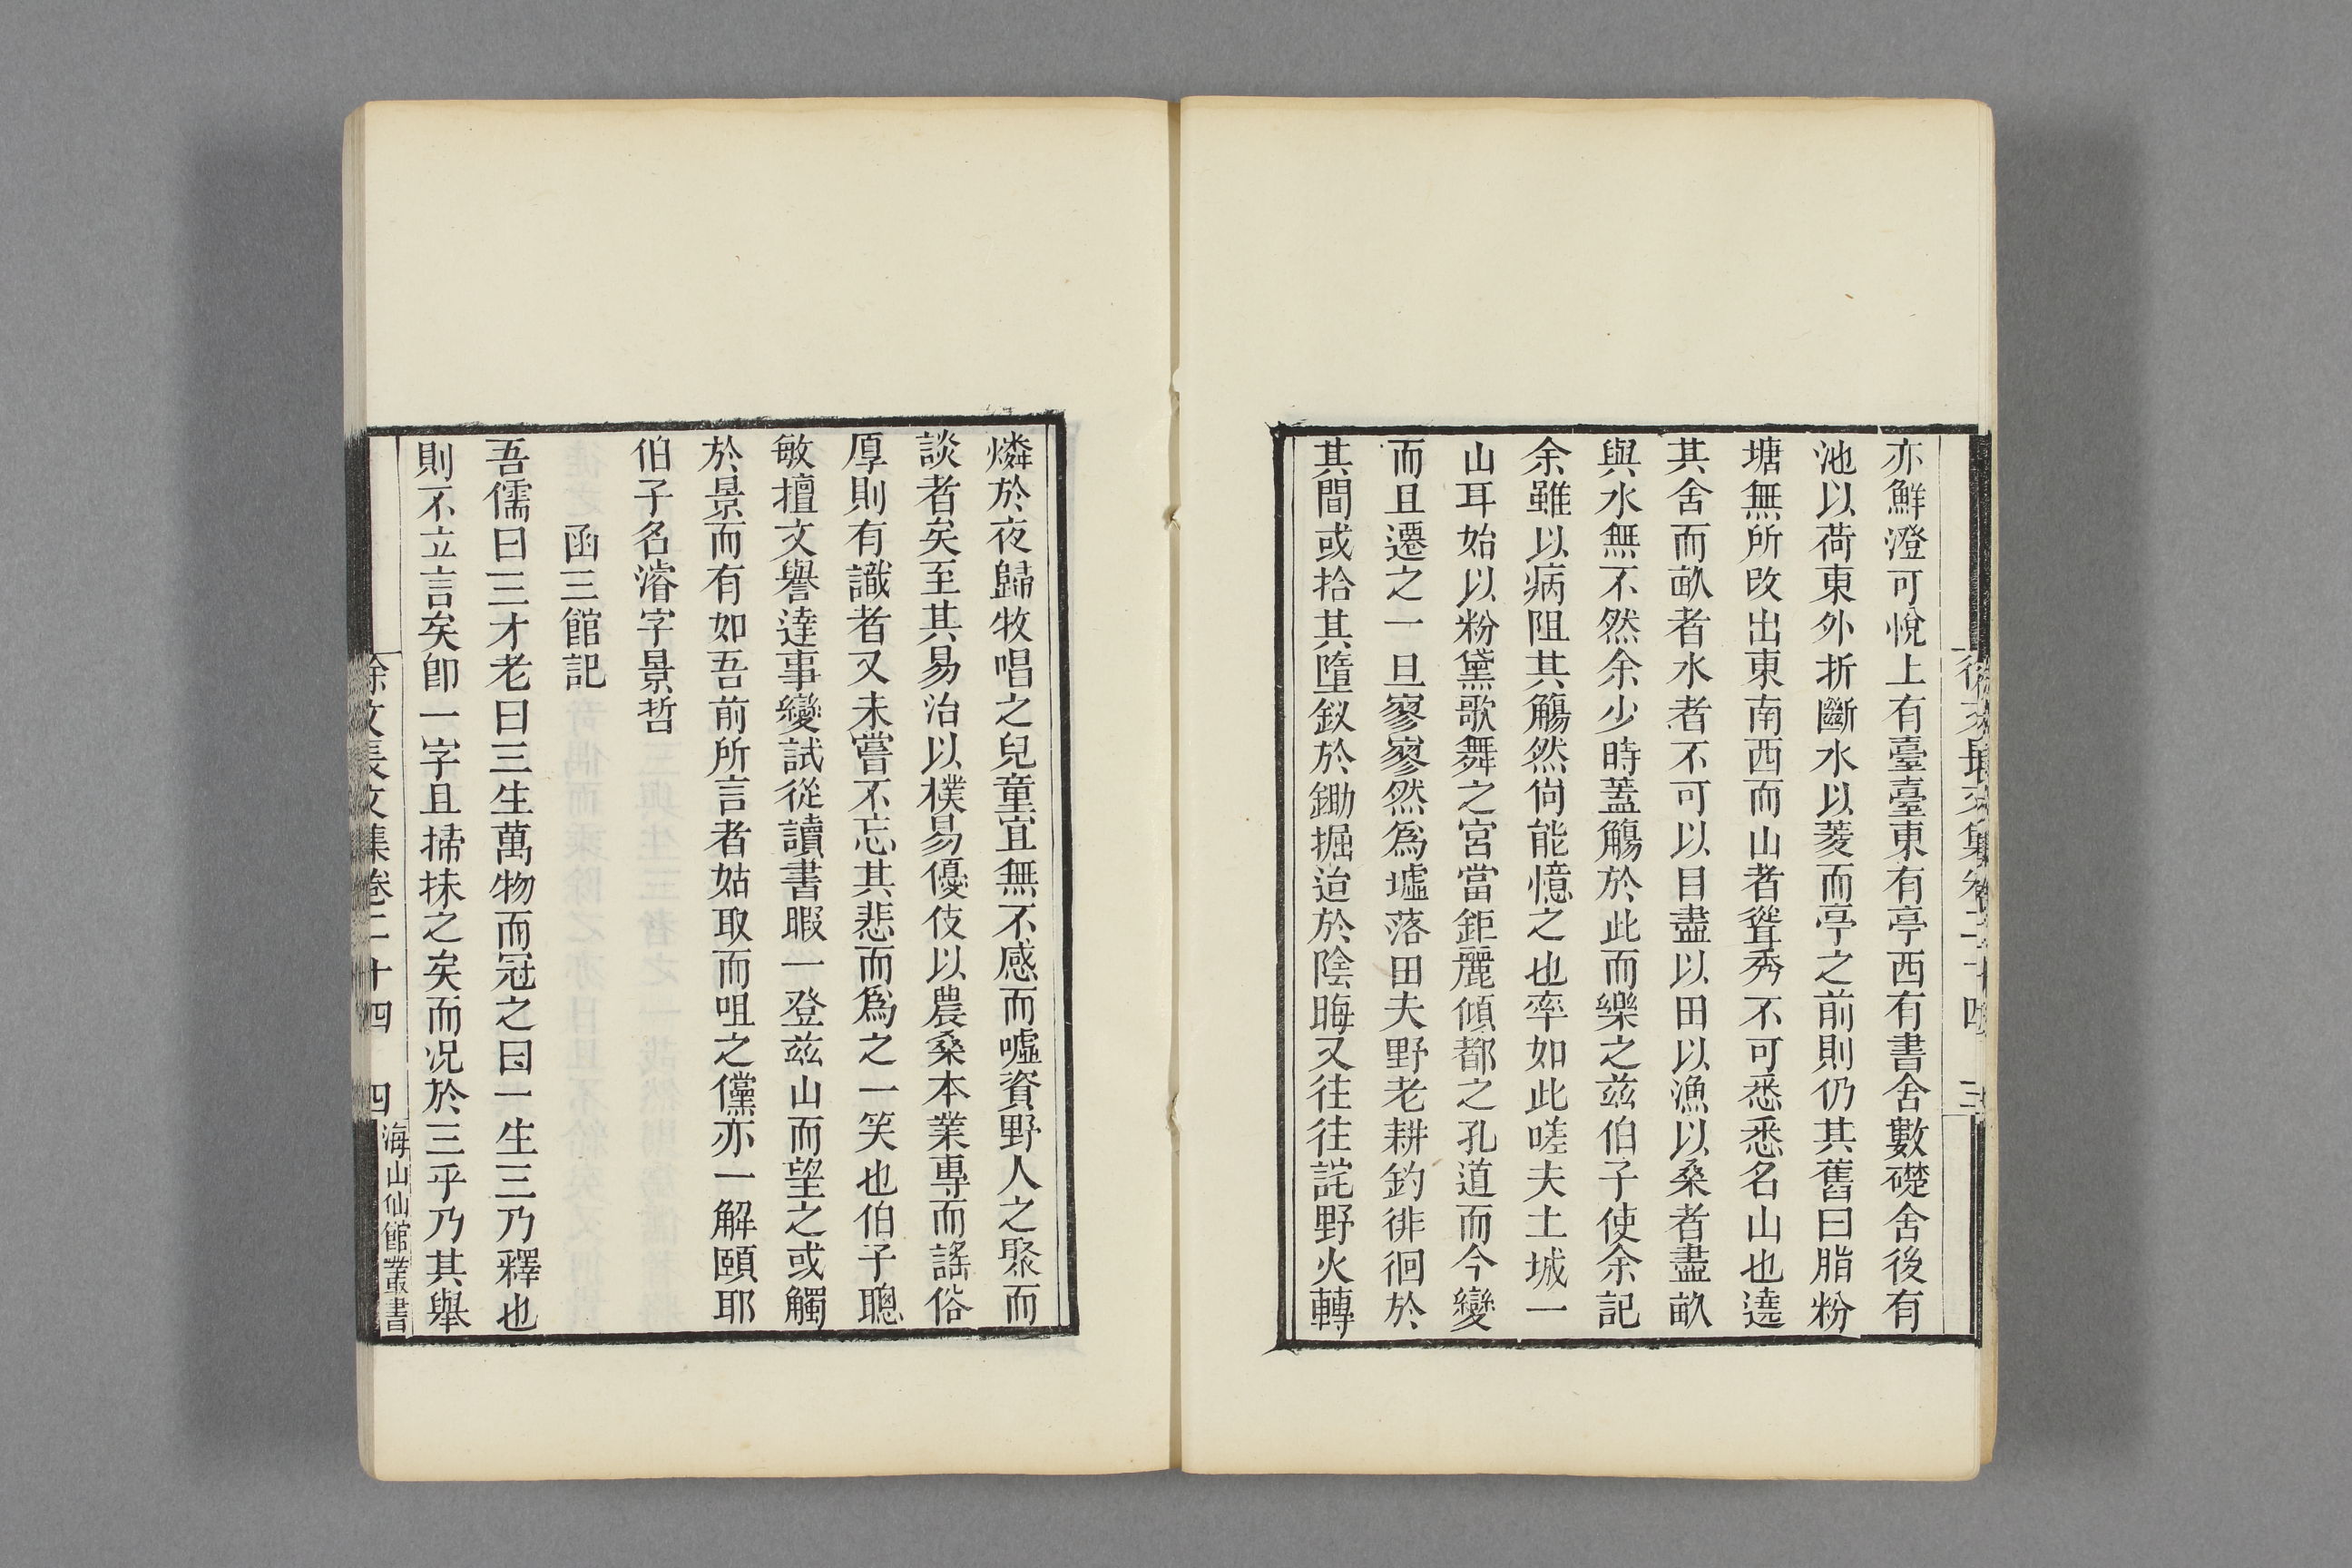 徐文長文集卷二十四 三
亦鮮澄可悅上有臺臺東有亭西有書舍數礎舍後有
池以荷東外折斷水以菱而亭之前則仍其舊曰脂粉
塘無所改出東南西而山者聳秀不可悉悉名山也遶
其舍而畝者水者不可以目盡以田以漁以桑者盡畝
與水無不然余少時蓋觴於此而樂之茲伯子使余記
余雖以病阻其觴然尙能憶之也率如此嗟夫土城一
山耳始以粉黛歌舞之宮當鉅麗傾都之孔道而今變
而且遷之一旦寥寥然爲墟落田夫野老耕釣徘徊於
其間或拾其墮釵於鋤掘迨於陰晦又往往詫野火轉
燐於夜歸牧唱之兒童宜無不感而噓資野人之聚而
談者矣至其易治以樸易優伎以農桑本業專而謠俗
厚則有識者又未嘗不忘其悲而爲之一笑也伯子聰
敏擅文譽達事變試從讀書暇一登茲山而望之或觸
於景而有如吾前所言者姑取而咀之儻亦一解頤耶
伯子名濬字景哲
函三館記
吾儒曰三才老曰三生萬物而冠之曰一生三乃釋也
則不立言矣卽一字且掃抹之矣而況於三乎乃其舉
徐文長文集卷二十四 四
海山仙館叢書